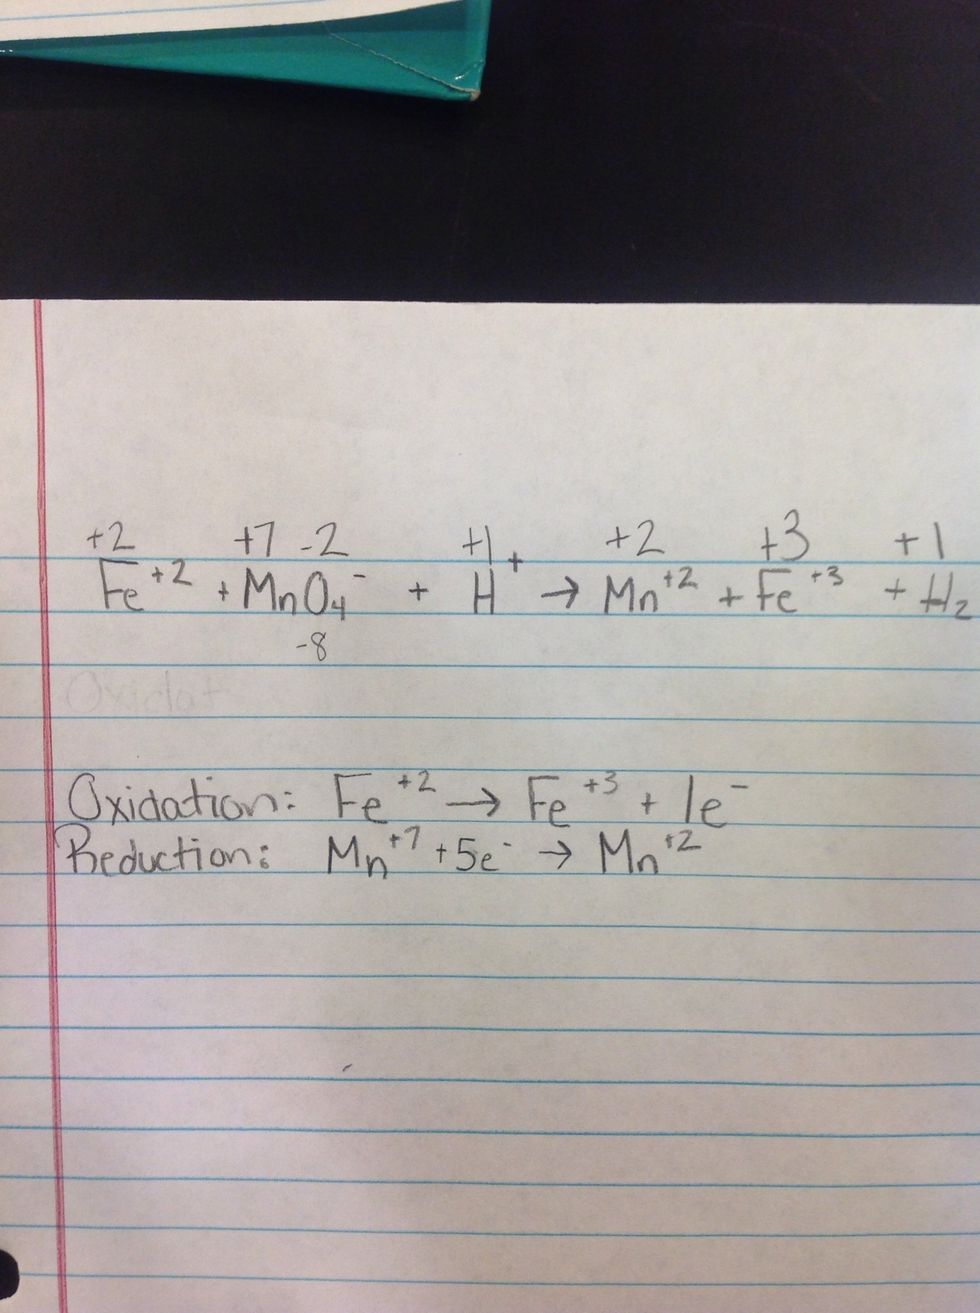 +2 +7 -2 +1 +2 +3 +1
Fe⁺² + MnO₄⁻ + H⁺ → Mn⁺² + Fe⁺³ + H₂
-8
Oxidat
Oxidation: Fe⁺² → Fe⁺³ + 1e⁻
Reduction: Mn⁺⁷ + 5e⁻ → Mn⁺²